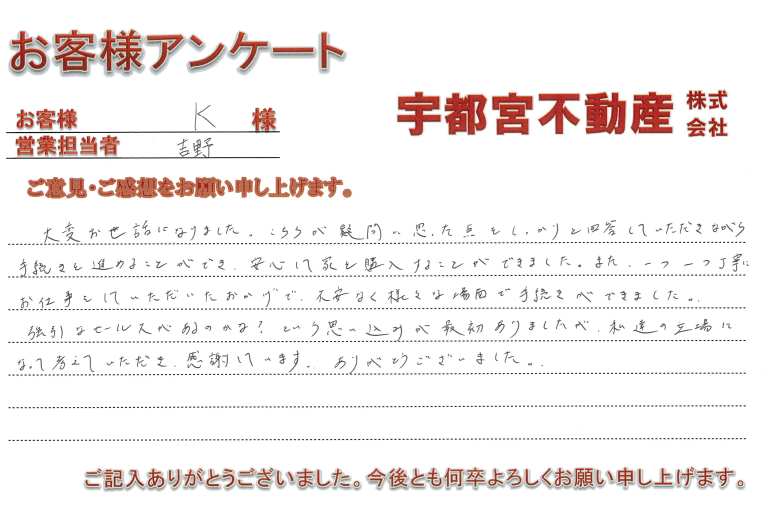 お客様アンケート
宇都宮不動産 株式会社
お客様 K 様
営業担当者 吉野
ご意見・ご感想をお願い申し上げます。
大変お世話になりました。こちらが疑問に思った点をしっかりと回答していただきながら
手続きを進めることができ、安心して家を購入することができました。また、一つ一つ丁寧に
お仕事をしていただいたおかげで、不安なく様々な場面で手続きができました。
強引なセールスがあるのかな?という思い込みが最初ありましたが、私達の立場に
なって考えていただき、感謝しています。ありがとうございました。
ご記入ありがとうございました。今後とも何卒よろしくお願い申し上げます。